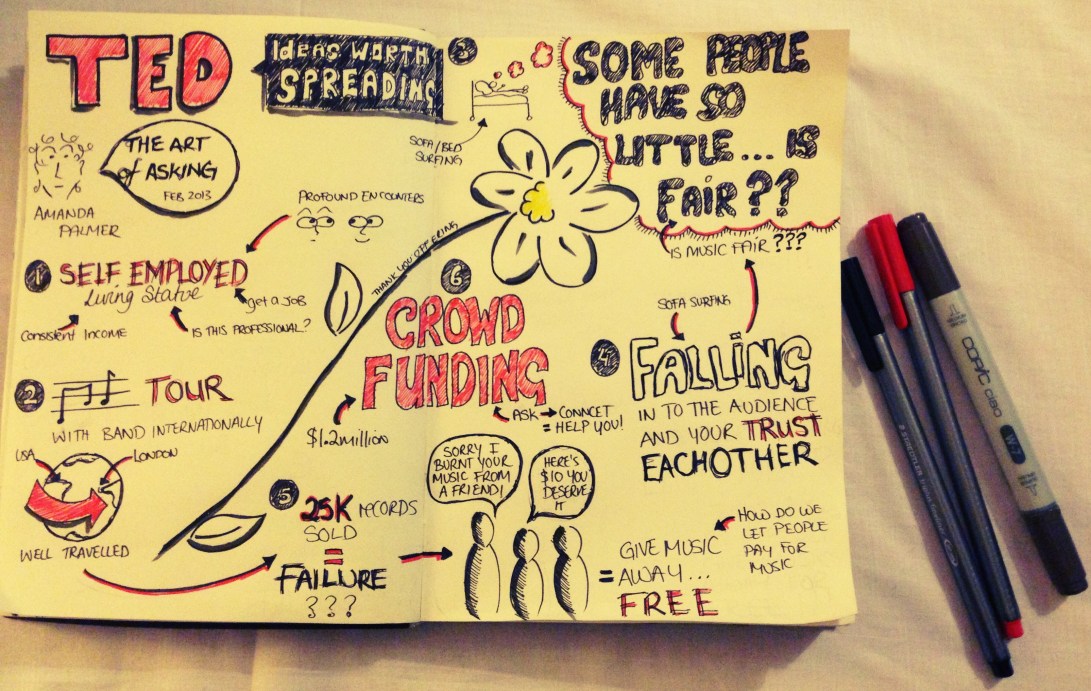 TED
IDEAS WORTH
SPREADING
THE ART
of ASKING
FEB 2013
AMANDA
PALMER
PROFOUND ENCOUNTERS
1 SELF EMPLOYED
Living Statue
get a JOB
Consistent INCOME
IS THIS PROFESSIONAL?
2 TOUR
WITH BAND INTERNATIONALLY
USA
LONDON
WELL TRAVELLED
3
SOFA/BED
SURFING
SOME PEOPLE
HAVE SO
LITTLE... IS
FAIR??
IS MUSIC FAIR???
SOFA SURFING
4 FALLING
IN TO THE AUDIENCE
AND YOUR TRUST
EACHOTHER
5
25K RECORDS
SOLD
=
FAILURE
???
SORRY I
BURNT YOUR
MUSIC FROM
A FRIEND!
HERE'S
$10 YOU
DESERVE
IT
= GIVE MUSIC
AWAY...
FREE
HOW DO WE
LET PEOPLE
PAY FOR
MUSIC
THANK YOU OFFERING
6
CROWD
FUNDING
$1.2million
ASK → CONNCET
= HELP YOU!
COPIC
ciao
W-7
STAEDTLER